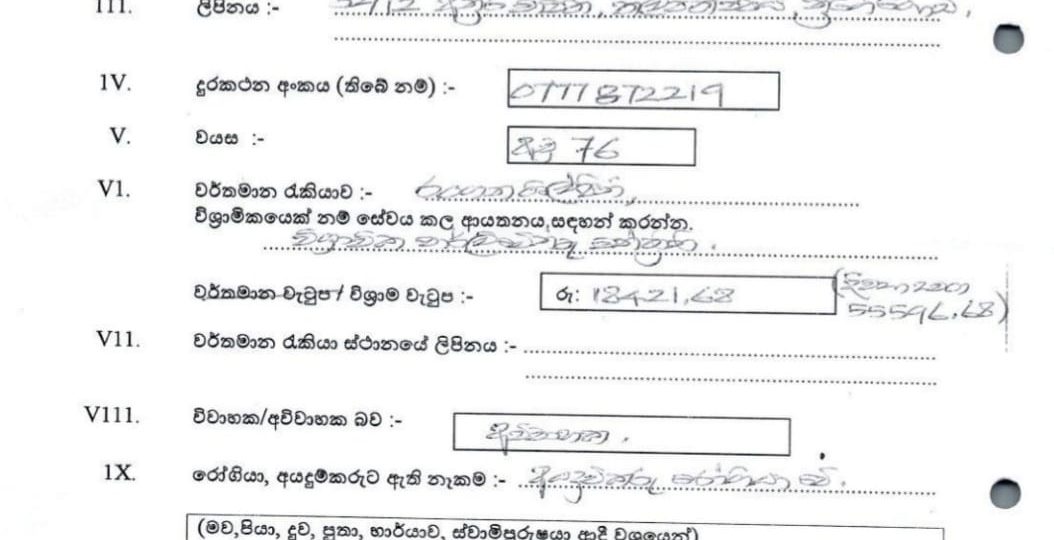 III. ලිපිනය :-
1V. දුරකථන අංකය (තිබේ නම්) :- 0777872219
V. වයස :- අවු 76
V1. වර්තමාන රැකියාව :-
විශ්‍රාමිකයෙක් නම් සේවය කල ආයතනය,සඳහන් කරන්න.
විශ්‍රාමික
වර්තමාන වැටුප / විශ්‍රාම වැටුප :- රු: 18421.68
55596.68)
V11. වර්තමාන රැකියා ස්ථානයේ ලිපිනය :-
V111. විවාහක/අවිවාහක බව :- අවිවාහක.
1X. රෝගියා, අයදුම්කරුට ඇති නෑකම :- අයදුම්කරු රෝගියා වේ.
(මව,පියා, දුව, පුතා, භාර්යාව, ස්වාමිපුරුෂයා ආදී වශයෙන්)